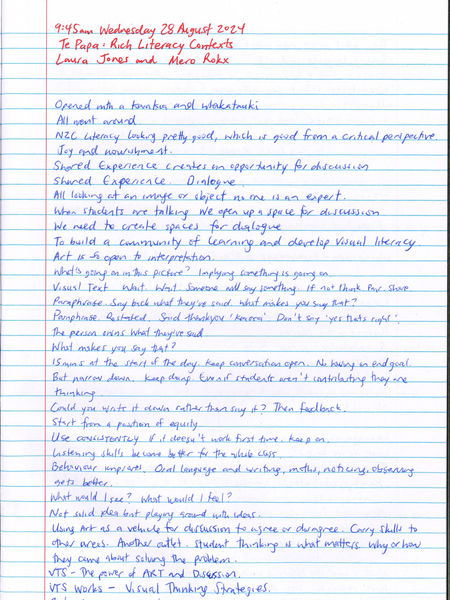 9:45am Wednesday 28 August 2024
Te Papa: Rich Literacy Contexts
Laura Jones and Mero Rokx
Opened with a karakia and whakatauki
All went around
NZC Literacy looking pretty good, which is good from a critical perspective.
Joy and nourishment.
Shared Experience creates an opportunity for discussion
Shared Experience. Dialogue.
All looking at an image or object no one is an expert.
When students are talking we open up a space for discussion
We need to create spaces for dialogue
To build a community of learning and develop visual literacy.
Art is open to interpretation.
What's going on in this picture? Implying something is going on.
Visual Text Wait. Wait. Someone will say something. If not think Pair. Share
Paraphrase. Say back what they've said. What makes you say that?
Paraphrase. Restated. Said thankyou 'Kaneoi'. Don't say 'yes thats right'.
The person owns what they've said
What makes you say that?
15mins at the start of the day. Keep conversation open. No having an end goal.
But narrow down. Keep going. Even if students aren't contributing they are
thinking.
Could you write it down rather than say it? Then feedback.
Start from a position of equity
Use consistently If it doesn't work first time. Keep on.
Listening skills become better for the whole class.
Behaviour improves. Oral language and writing, maths, noticing, observing
gets better.
What would I see? What would I feel?
Not solid idea but playing around with ideas.
Using Art as a vehicle for discussion to agree or disagree. Carry skills to
other areas. Another outlet. Student thinking is what matters. Why or how
they came about solving the problem.
VTS - The power of ART and Discussion.
VTS Works - Visual Thinking Strategies.